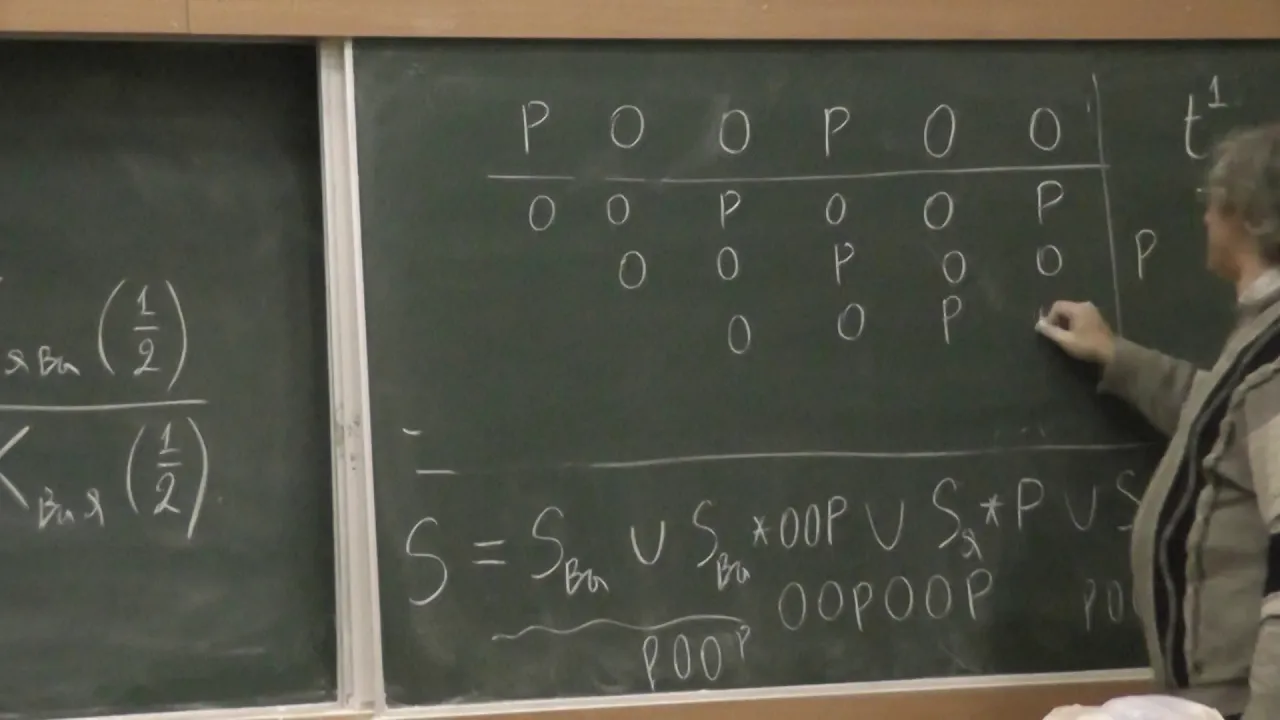 яВы (1/2)
K Вы я (1/2)
P O O P O O t¹
O O P O O P
O O P O O P
O O P
S = S Вы ∪ S Вы * OOP ∪ S я * P ∪ S
OOPOOP
POOP